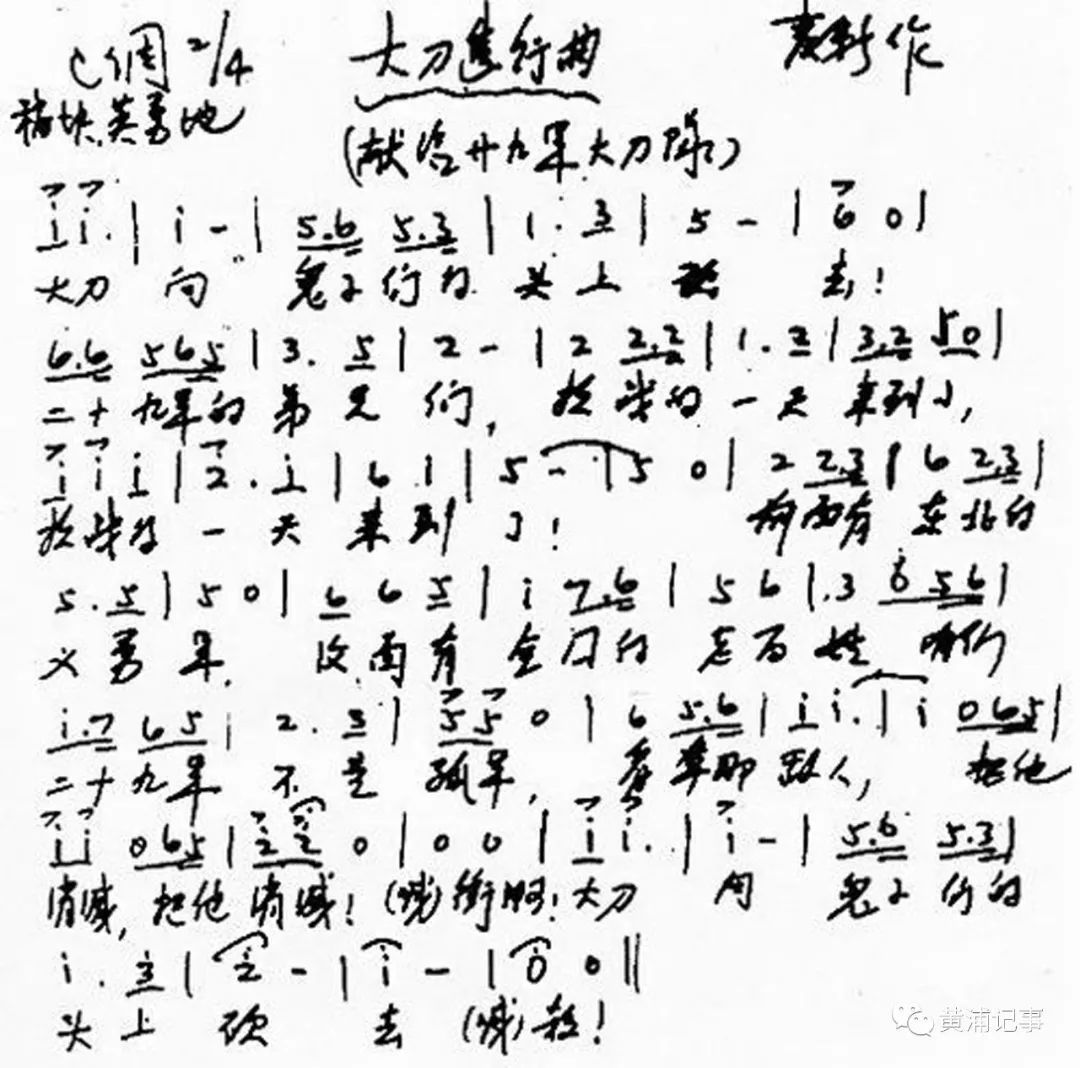 C调 2/4 大刀进行曲 麦新作
稍快、英勇地
(献给廿九军大刀队)
i i. | i - | 5.6 5.3 | 1. 3 | 5 - | 6 0 |
大刀 向 鬼子们的 头上 砍 去!
6.6 565 | 3. 5 | 2 - | 2 2.2 | 1. 2 | 3.2 50 |
二十九军的弟兄们, 抗战的一天来到了,
i i i | 2. i | 6 i | 5 - | 5 0 | 2 2.3 | 6 2.3 |
抗战的一天来到了! 前面有 东北的
5. 5 | 5 0 | 6 6 5 | i 7.6 | 5 6 | .3 0 56 |
义勇军, 后面有全国的老百姓, 咱们
i.7 65 | 2. 3 | 5 5 0 | 6 5.6 | i i. | i 065 |
二十九军不是孤军, 看準那敌人, 把他
i i 065 | 2 2 0 | 0 0 | i i. | i - | 5.6 5.3 |
消滅, 把他消滅! (喊)衝啊! 大刀 向 鬼子们的
i. 3 | 2 - | i - | 0 0 ‖
头上砍去 (喊)殺!
黄浦记事